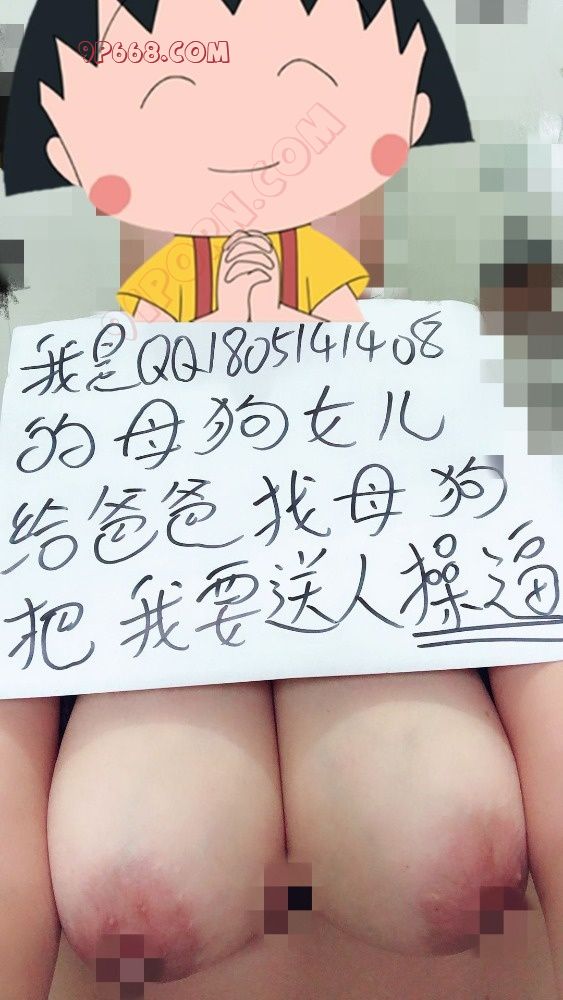 9P668.COM
91PORN.COM
我是QQ1805141408
的母狗女儿
给爸爸找母狗
把我要送人操逼